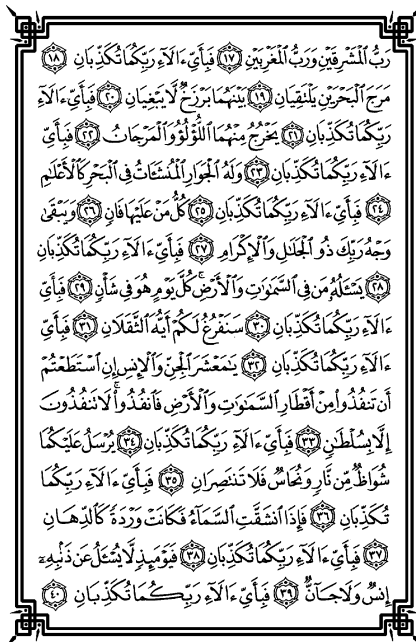 رَبُّ ٱلْمَشْرِقَيْنِ وَرَبُّ ٱلْمَغْرِبَيْنِ ١٧ فَبِأَيِّ ءَالَآءِ رَبِّكُمَا تُكَذِّبَانِ ١٨
مَرَجَ ٱلْبَحْرَيْنِ يَلْتَقِيَانِ ١٩ بَيْنَهُمَا بَرْزَخٌ لَّا يَبْغِيَانِ ٢٠ فَبِأَيِّ ءَالَآءِ
رَبِّكُمَا تُكَذِّبَانِ ٢١ يَخْرُجُ مِنْهُمَا ٱللُّؤْلُؤُ وَٱلْمَرْجَانُ ٢٢ فَبِأَيِّ
ءَالَآءِ رَبِّكُمَا تُكَذِّبَانِ ٢٣ وَلَهُ ٱلْجَوَارِ ٱلْمُنشَـَٔاتُ فِى ٱلْبَحْرِ كَٱلْأَعْلَـٰمِ
٢٤ فَبِأَيِّ ءَالَآءِ رَبِّكُمَا تُكَذِّبَانِ ٢٥ كُلُّ مَنْ عَلَيْهَا فَانٍ ٢٦ وَيَبْقَىٰ
وَجْهُ رَبِّكَ ذُو ٱلْجَلَـٰلِ وَٱلْإِكْرَامِ ٢٧ فَبِأَيِّ ءَالَآءِ رَبِّكُمَا تُكَذِّبَانِ
٢٨ يَسْـَٔلُهُۥ مَن فِى ٱلسَّمَـٰوَٰتِ وَٱلْأَرْضِ ۚ كُلَّ يَوْمٍ هُوَ فِى شَأْنٍ ٢٩ فَبِأَيِّ
ءَالَآءِ رَبِّكُمَا تُكَذِّبَانِ ٣٠ سَنَفْرُغُ لَكُمْ أَيُّهَ ٱلثَّقَلَانِ ٣١ فَبِأَيِّ
ءَالَآءِ رَبِّكُمَا تُكَذِّبَانِ ٣٢ يَـٰمَعْشَرَ ٱلْجِنِّ وَٱلْإِنسِ إِنِ ٱسْتَطَعْتُمْ
أَن تَنفُذُوا۟ مِنْ أَقْطَارِ ٱلسَّمَـٰوَٰتِ وَٱلْأَرْضِ فَٱنفُذُوا۟ ۚ لَا تَنفُذُونَ
إِلَّا بِسُلْطَـٰنٍ ٣٣ فَبِأَيِّ ءَالَآءِ رَبِّكُمَا تُكَذِّبَانِ ٣٤ يُرْسَلُ عَلَيْكُمَا
شُوَاظٌ مِّن نَّارٍ وَنُحَاسٌ فَلَا تَنتَصِرَانِ ٣٥ فَبِأَيِّ ءَالَآءِ رَبِّكُمَا
تُكَذِّبَانِ ٣٦ فَإِذَا ٱنشَقَّتِ ٱلسَّمَآءُ فَكَانَتْ وَرْدَةً كَٱلدِّهَانِ
٣٧ فَبِأَيِّ ءَالَآءِ رَبِّكُمَا تُكَذِّبَانِ ٣٨ فَيَوْمَئِذٍ لَّا يُسْـَٔلُ عَن ذَنۢبِهِۦٓ
إِنسٌ وَلَا جَآنٌّ ٣٩ فَبِأَيِّ ءَالَآءِ رَبِّكُمَا تُكَذِّبَانِ ٤٠